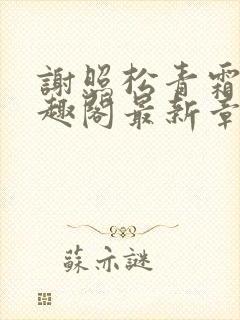 謝照松青霜
趣閣最新章
蘇亦謎